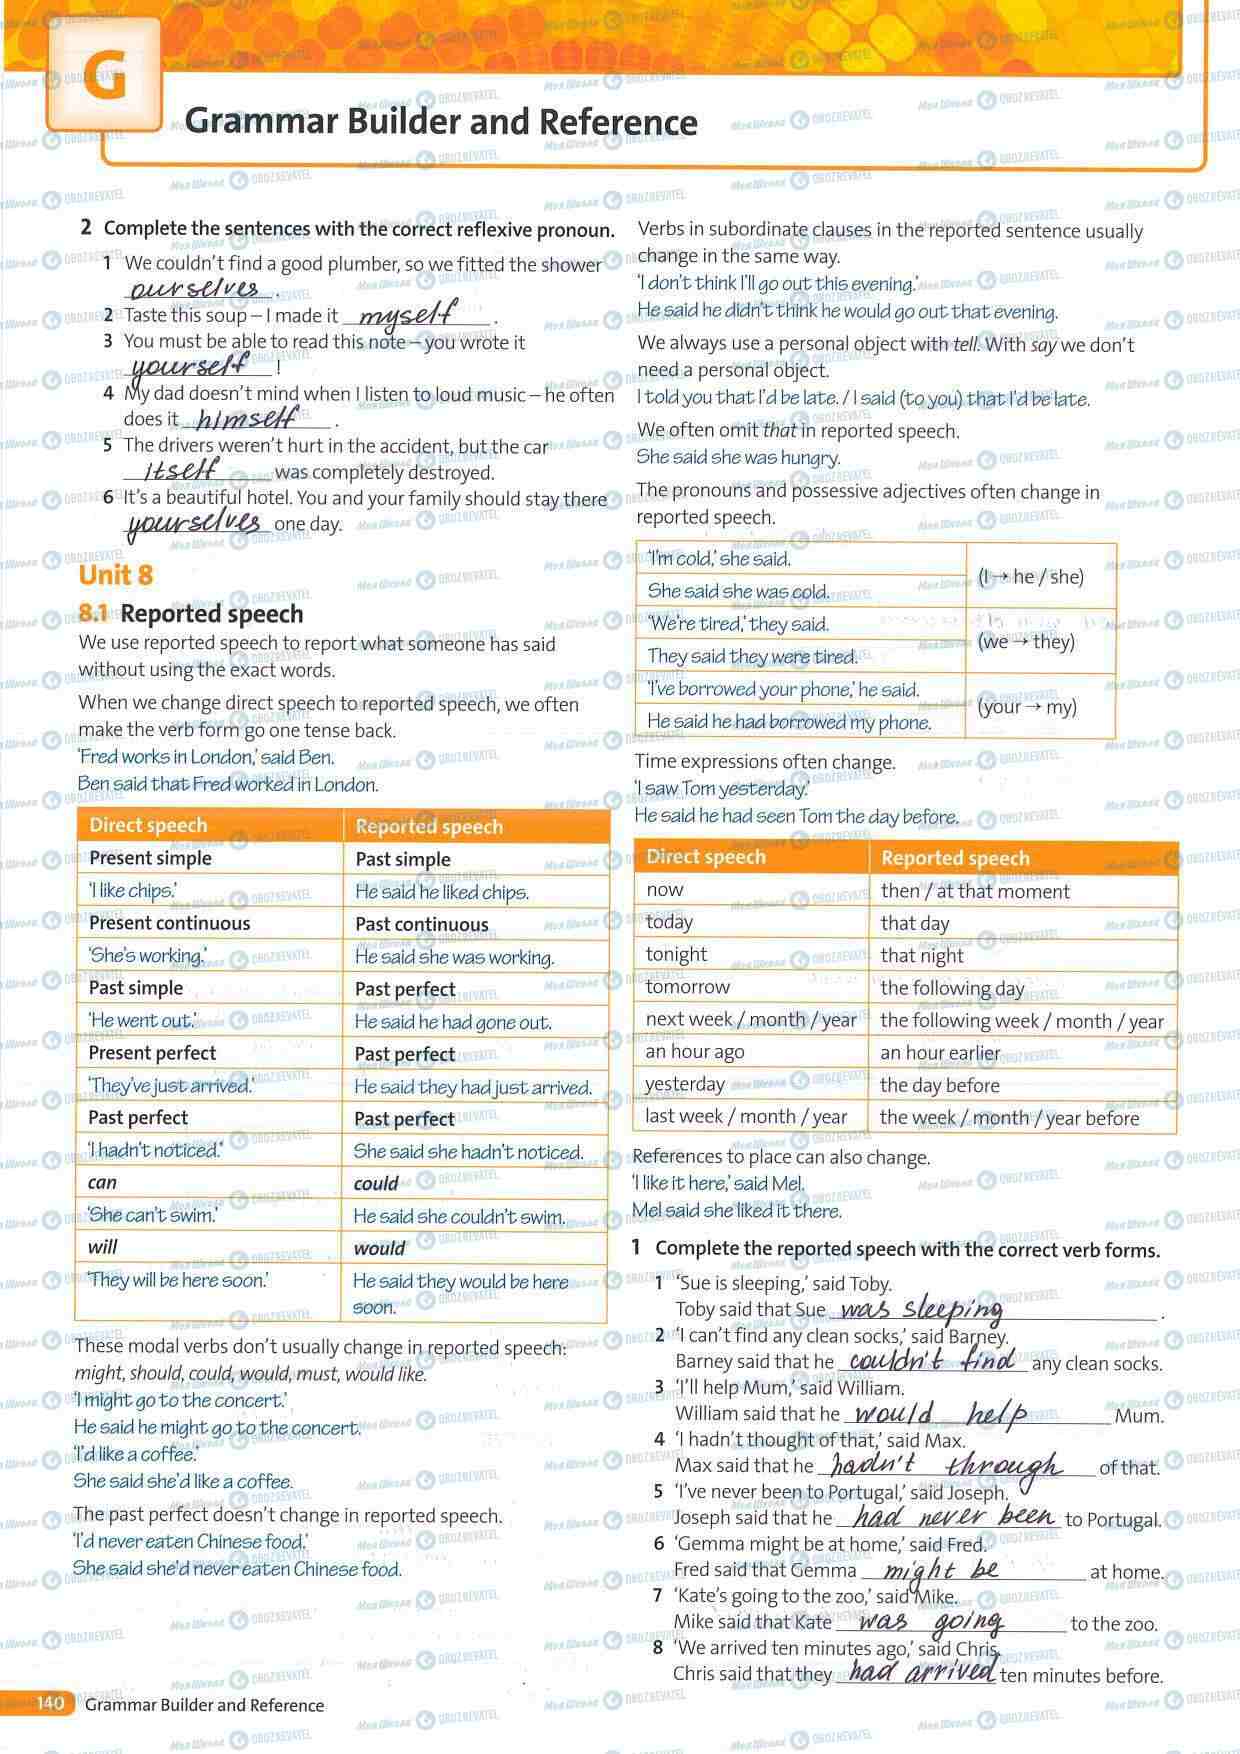 G
Grammar Builder and Reference
2 Complete the sentences with the correct reflexive pronoun.
1 We couldn't find a good plumber, so we fitted the shower
ourselves .
2 Taste this soup – I made it myself .
3 You must be able to read this note – you wrote it
yourself !
4 My dad doesn't mind when I listen to loud music – he often
does it himself .
5 The drivers weren't hurt in the accident, but the car
itself was completely destroyed.
6 It's a beautiful hotel. You and your family should stay there
yourselves one day.
Unit 8
8.1 Reported speech
We use reported speech to report what someone has said
without using the exact words.
When we change direct speech to reported speech, we often
make the verb form go one tense back.
'Fred works in London,' said Ben.
Ben said that Fred worked in London.
Direct speech Reported speech
Present simple Past simple
'I like chips.' He said he liked chips.
Present continuous Past continuous
'She's working.' He said she was working.
Past simple Past perfect
'He went out.' He said he had gone out.
Present perfect Past perfect
'They've just arrived.' He said they had just arrived.
Past perfect Past perfect
'I hadn't noticed.' She said she hadn't noticed.
can could
'She can't swim.' He said she couldn't swim.
will would
'They will be here soon.' He said they would be here
soon.
These modal verbs don't usually change in reported speech:
might, should, could, would, must, would like.
'I might go to the concert.'
He said he might go to the concert.
'I'd like a coffee.'
She said she'd like a coffee.
The past perfect doesn't change in reported speech.
'I'd never eaten Chinese food.'
She said she'd never eaten Chinese food.
Verbs in subordinate clauses in the reported sentence usually
change in the same way.
'I don't think I'll go out this evening.'
He said he didn't think he would go out that evening.
We always use a personal object with tell. With say we don't
need a personal object.
I told you that I'd be late. / I said (to you) that I'd be late.
We often omit that in reported speech.
She said she was hungry.
The pronouns and possessive adjectives often change in
reported speech.
'I'm cold,' she said.
(I → he / she)
She said she was cold.
'We're tired,' they said.
(we → they)
They said they were tired.
'I've borrowed your phone,' he said.
(your → my)
He said he had borrowed my phone.
Time expressions often change.
'I saw Tom yesterday.'
He said he had seen Tom the day before.
Direct speech Reported speech
now then / at that moment
today that day
tonight that night
tomorrow the following day
next week / month / year the following week / month / year
an hour ago an hour earlier
yesterday the day before
last week / month / year the week / month / year before
References to place can also change.
'I like it here,' said Mel.
Mel said she liked it there.
1 Complete the reported speech with the correct verb forms.
1 'Sue is sleeping,' said Toby.
Toby said that Sue was sleeping .
2 'I can't find any clean socks,' said Barney.
Barney said that he couldn't find any clean socks.
3 'I'll help Mum,' said William.
William said that he would help Mum.
4 'I hadn't thought of that,' said Max.
Max said that he hadn't through of that.
5 'I've never been to Portugal,' said Joseph.
Joseph said that he had never been to Portugal.
6 'Gemma might be at home,' said Fred.
Fred said that Gemma might be at home.
7 'Kate's going to the zoo,' said Mike.
Mike said that Kate was going to the zoo.
8 'We arrived ten minutes ago,' said Chris.
Chris said that they had arrived ten minutes before.
140 Grammar Builder and Reference